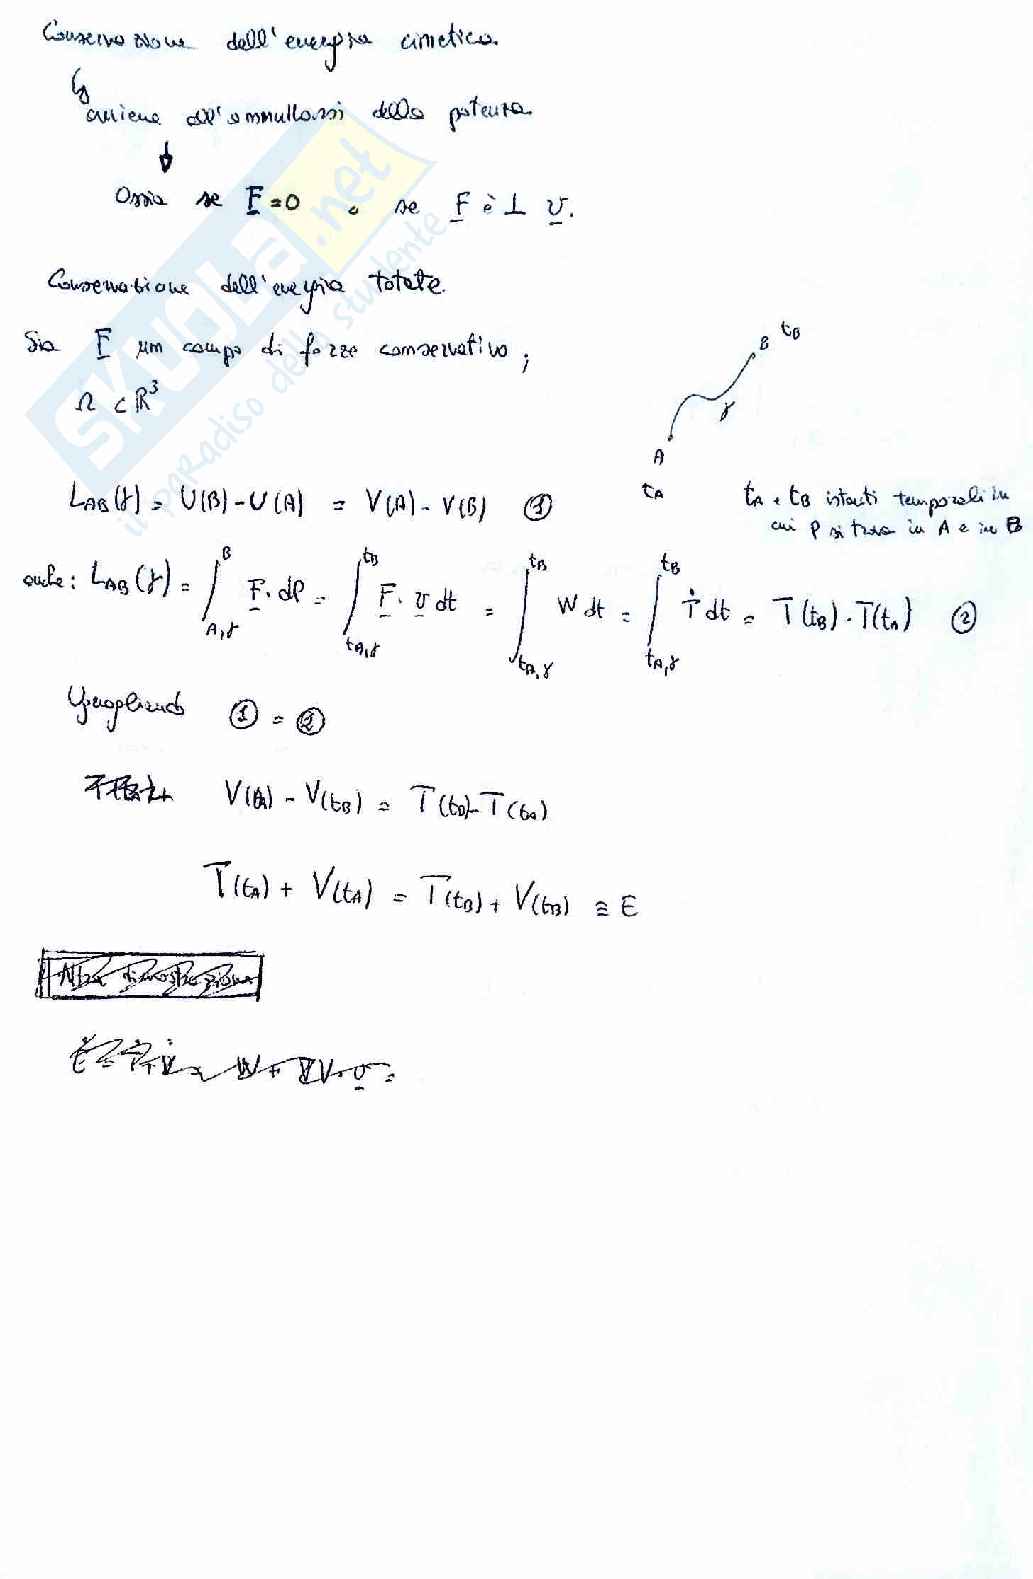 Conservazione dell'energia cinetica.
avviene all'annullarsi della potenza
Ossia se F=0 o se F è ⊥ v.
Conservazione dell'energia totale.
Sia F un campo di forze conservativo;
Ω ⊂ R³
B t_B
γ
A
t_A
t_A e t_B istanti temporali in
cui P si trova in A e in B
L_AB(γ) = U(B) - U(A) = V(A) - V(B) ①
anche: L_AB(γ) = ∫_{A,γ}^{B} F · dP = ∫_{t_A,γ}^{t_B} F · v dt = ∫_{t_A,γ}^{t_B} W dt = ∫_{t_A,γ}^{t_B} Ṫ dt = T(t_B) - T(t_A) ②
Uguagliando ① = ②
V(t_A) - V(t_B) = T(t_B) - T(t_A)
T(t_A) + V(t_A) = T(t_B) + V(t_B) ≅ E
SKUOLA.net
il paradiso dello studente